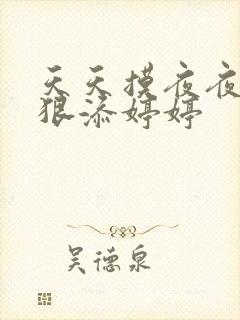 天天摸夜夜
狠添婷婷
吴德泉